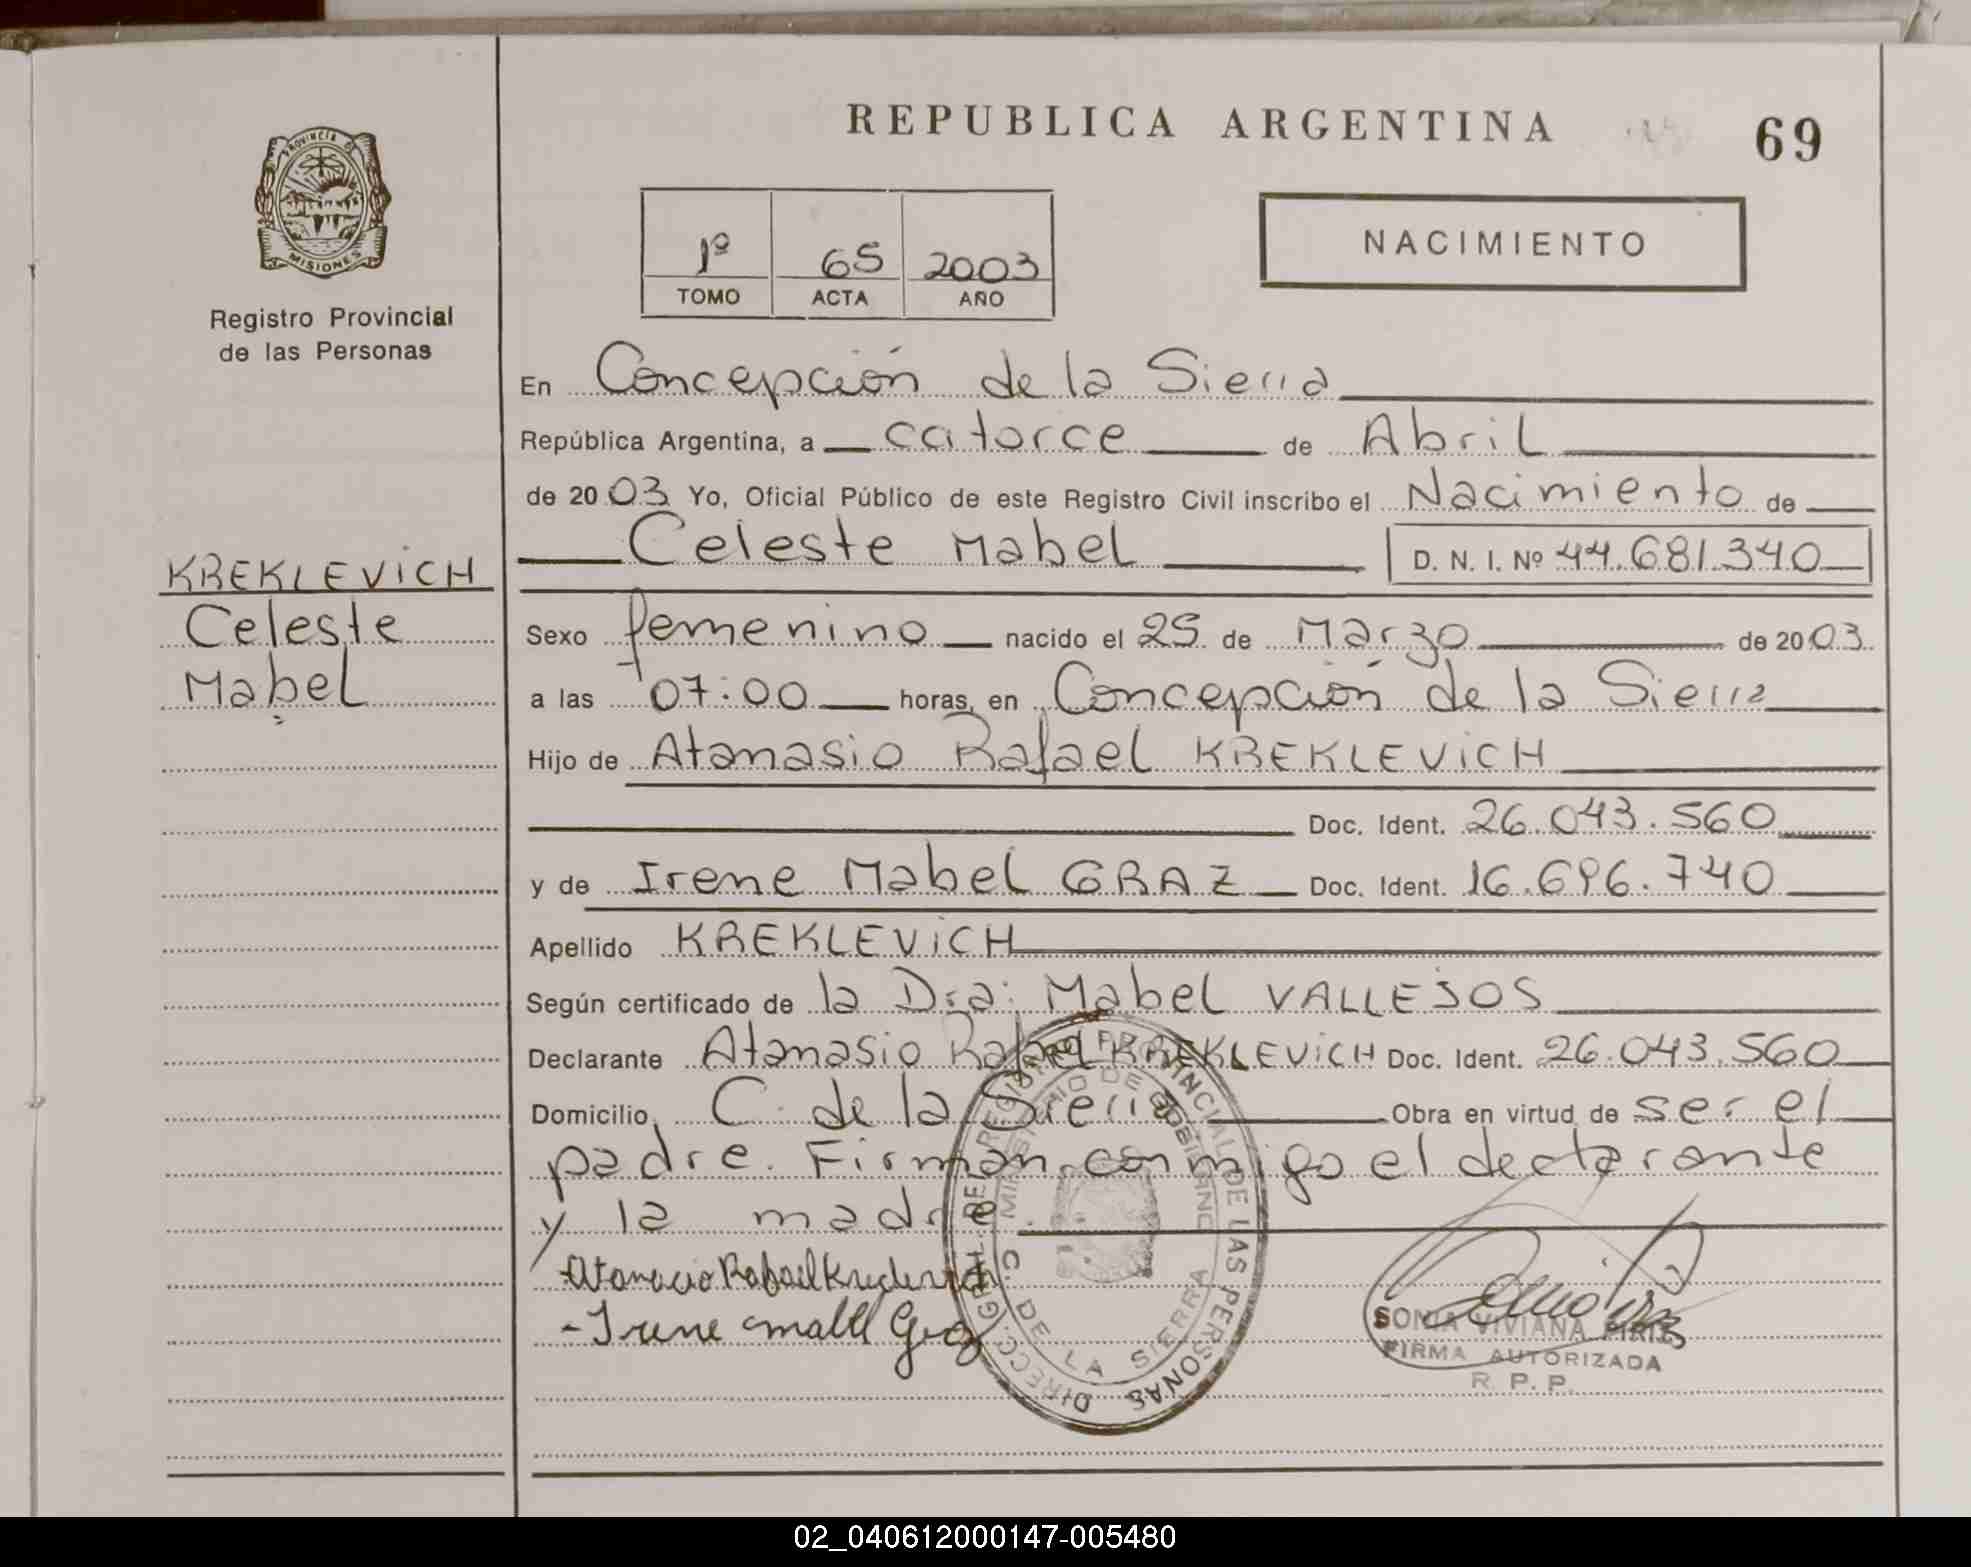 REPUBLICA ARGENTINA
69
PROVINCIA DE
MISIONES
Registro Provincial
de las Personas
1º 65 2003
TOMO ACTA AÑO
NACIMIENTO
En Concepción de la Sierra
República Argentina, a catorce de Abril
de 2003 Yo, Oficial Público de este Registro Civil inscribo el Nacimiento de
Celeste Mabel D. N. I. Nº 44.681.340
KREKLEVICH
Celeste
Mabel
Sexo femenino nacido el 25 de Marzo de 2003
a las 07:00 horas, en Concepción de la Sierra
Hijo de Atanasio Rafael KREKLEVICH
Doc. Ident. 26.043.560
y de Irene Mabel GRAZ Doc. Ident. 16.696.740
Apellido KREKLEVICH
Según certificado de la Dra: Mabel VALLEJOS
Declarante Atanasio Rafael KREKLEVICH Doc. Ident. 26.043.560
Domicilio C. de la Sierra Obra en virtud de ser el
padre. Firman conmigo el declarante
y la madre.
Atanacio Rafael
- Irene
DIRECC. GRAL. DEL REGISTRO PROVINCIAL DE LAS PERSONAS
MINISTERIO DE GOBIERNO
C. DE LA SIERRA
SONIA VIVIANA
FIRMA AUTORIZADA
R. P. P.
02_040612000147-005480